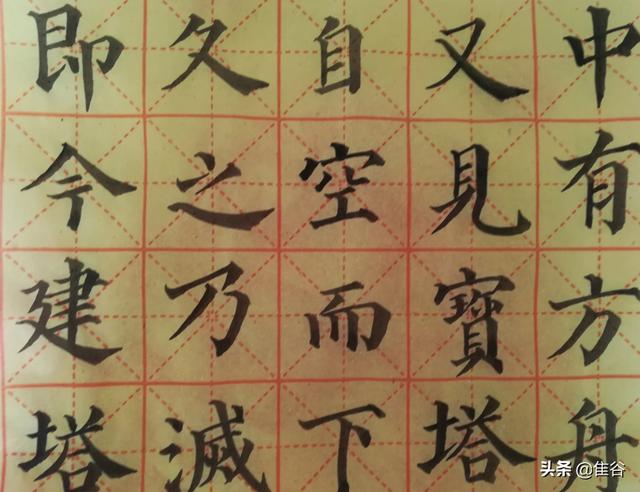 中有方舟
又見寶塔
自空而下
久之乃滅
即今建塔
头条 @隹谷